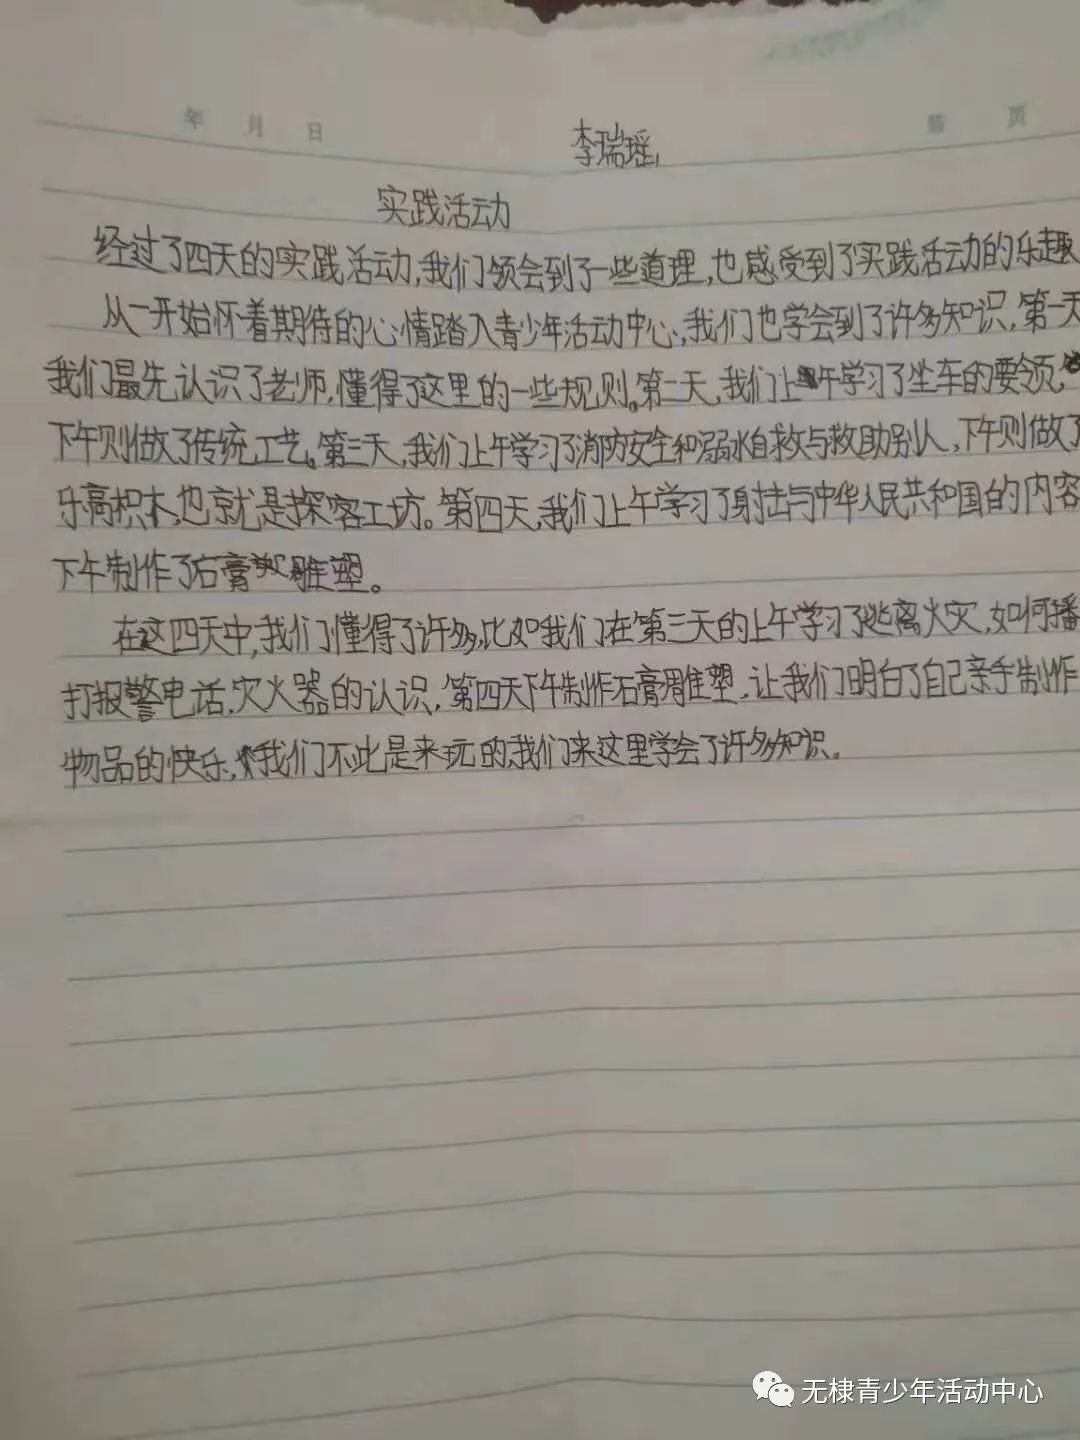 年 月 日 第 页
李瑞瑶
实践活动
经过了四天的实践活动,我们领会到了一些道理,也感受到了实践活动的乐趣
从一开始怀着期待的心情踏入青少年活动中心,我们也学会到了许多知识,第一天
我们最先认识了老师,懂得了这里的一些规则。第二天,我们上午学习了坐车的要领,
下午则做了传统工艺。第三天,我们上午学习了消防安全和溺水自救与救助别人,下午则做了
乐高积木,也就是探客工坊。第四天,我们上午学习了射击与中华人民共和国的内容
下午制作了石膏雕塑。
在这四天中,我们懂得了许多,比如我们在第三天的上午学习了逃离火灾,如何播
打报警电话,灾火器的认识,第四天下午制作石膏雕塑,让我们明白了自己亲手制作
物品的快乐,我们不止是来玩的,我们来这里学会了许多知识。
无棣青少年活动中心